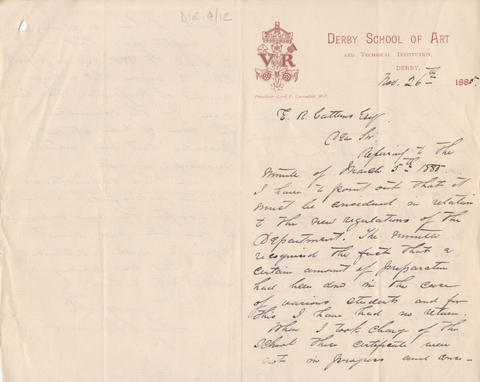 DIR 4/12
DERBY SCHOOL OF ART
AND TECHNICAL INSTITUTION,
DERBY,
V R
President—Lord F. Cavendish, M.P.
Nov. 26th 1885.
E. R. Cattens Esqr
Dear Sir
Referring to the
minute of March 5th 1885
I have to point out that it
must be considered in relation
to the new regulations of the
Department. The minute
recognised the fact that a
certain amount of preparation
had been done in the case
of various students and for
this I have had no return.
When I took charge of the
school these certificates were
in progress and